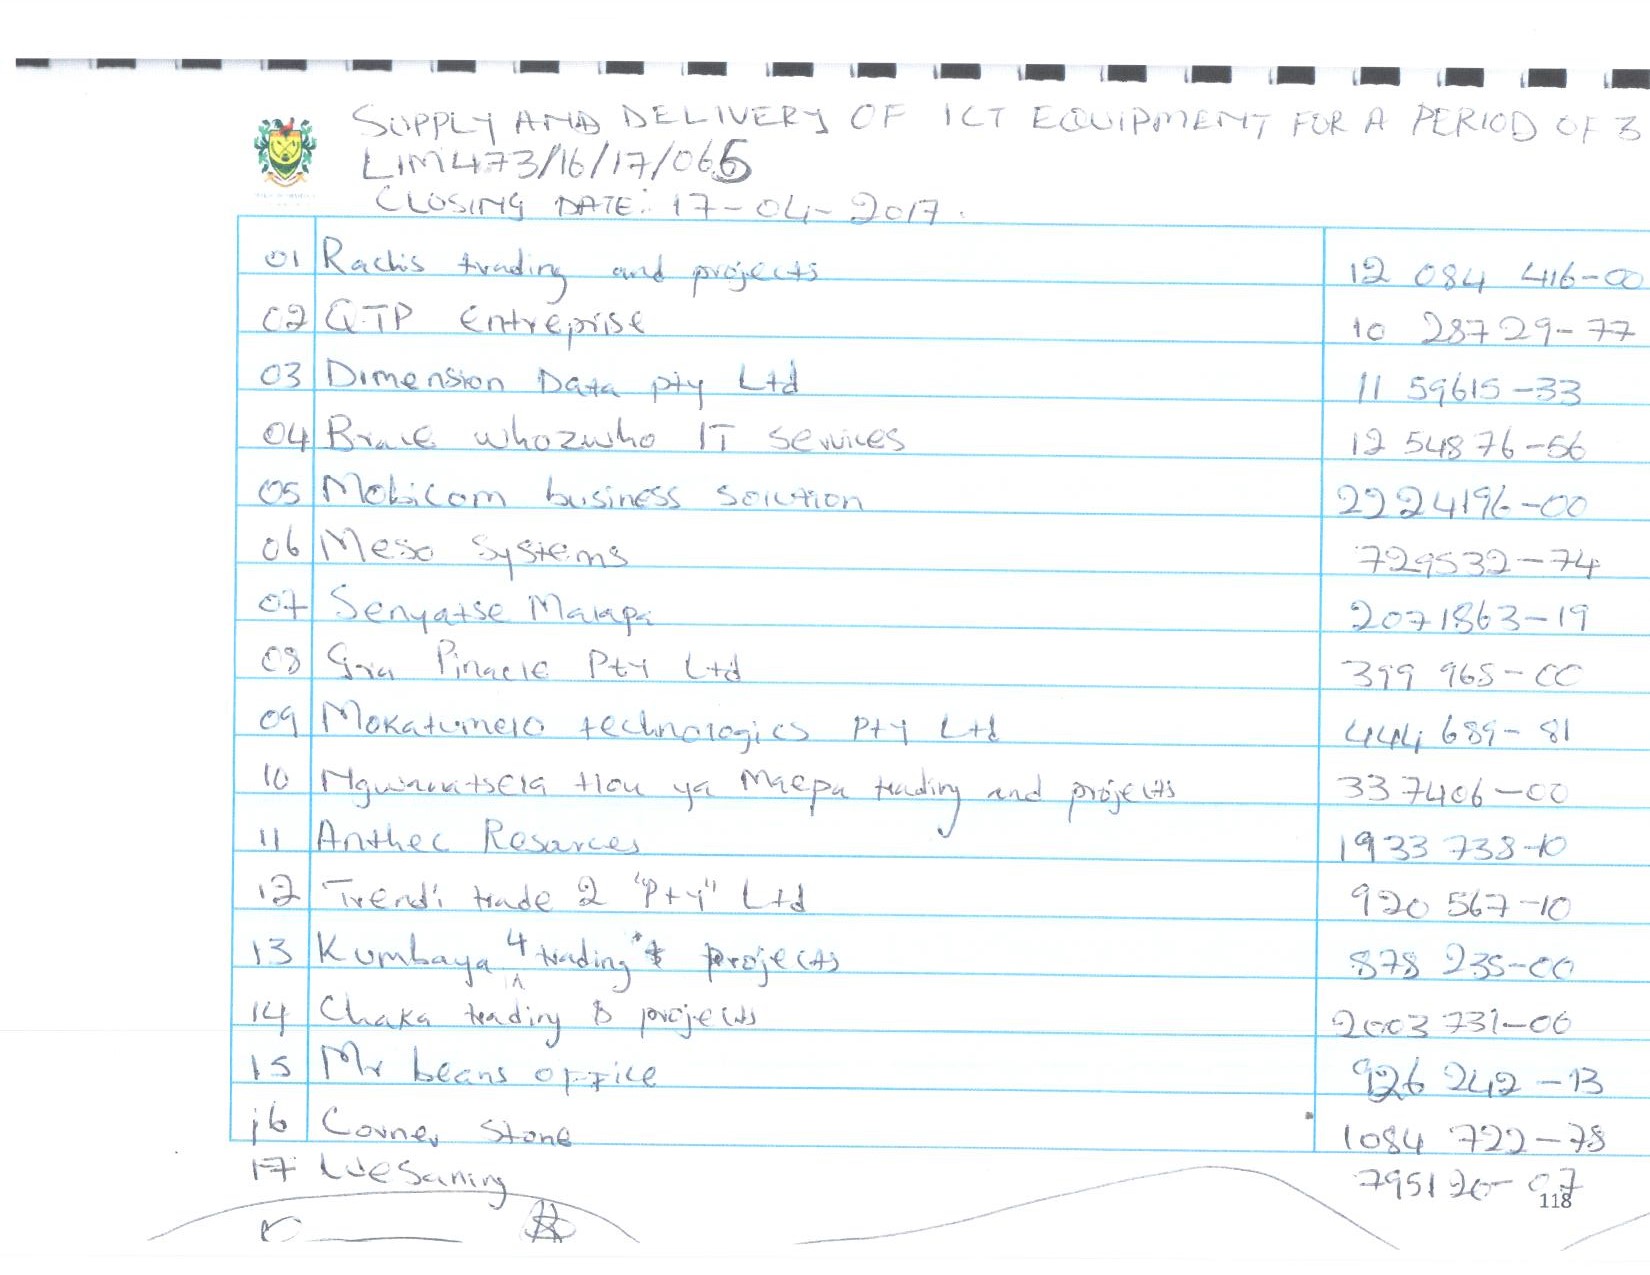 SUPPLY AND DELIVERY OF ICT EQUIPMENT FOR A PERIOD OF 3
LIM473/16/17/066
CLOSING DATE: 17-04-2017.
01 Rachis trading and projects 12 084 416-00
02 QTP Entreprise 10 28729-77
03 Dimension Data pty Ltd 11 59615-33
04 Brave whozwho IT services 12 54876-56
05 Mobicom business solution 2224196-00
06 Meso Systems 729532-74
07 Senyatse Malapa 2071863-19
08 Gra Pinacle Pty Ltd 399 965-00
09 Mokatumelo technologies Pty Ltd 444 689-81
10 tlou ya Maepa trading and projects 337406-00
11 Anthec Resarces 1933 738-10
12 Trendi trade 2 "Pty" Ltd 920 567-10
13 Kumbaya 4 trading & projects 878 235-00
14 Chaka trading & projects 2003 731-00
15 Mr beans office 926 242-13
16 Corner Stone 1084 722-78
17 795120-07
118